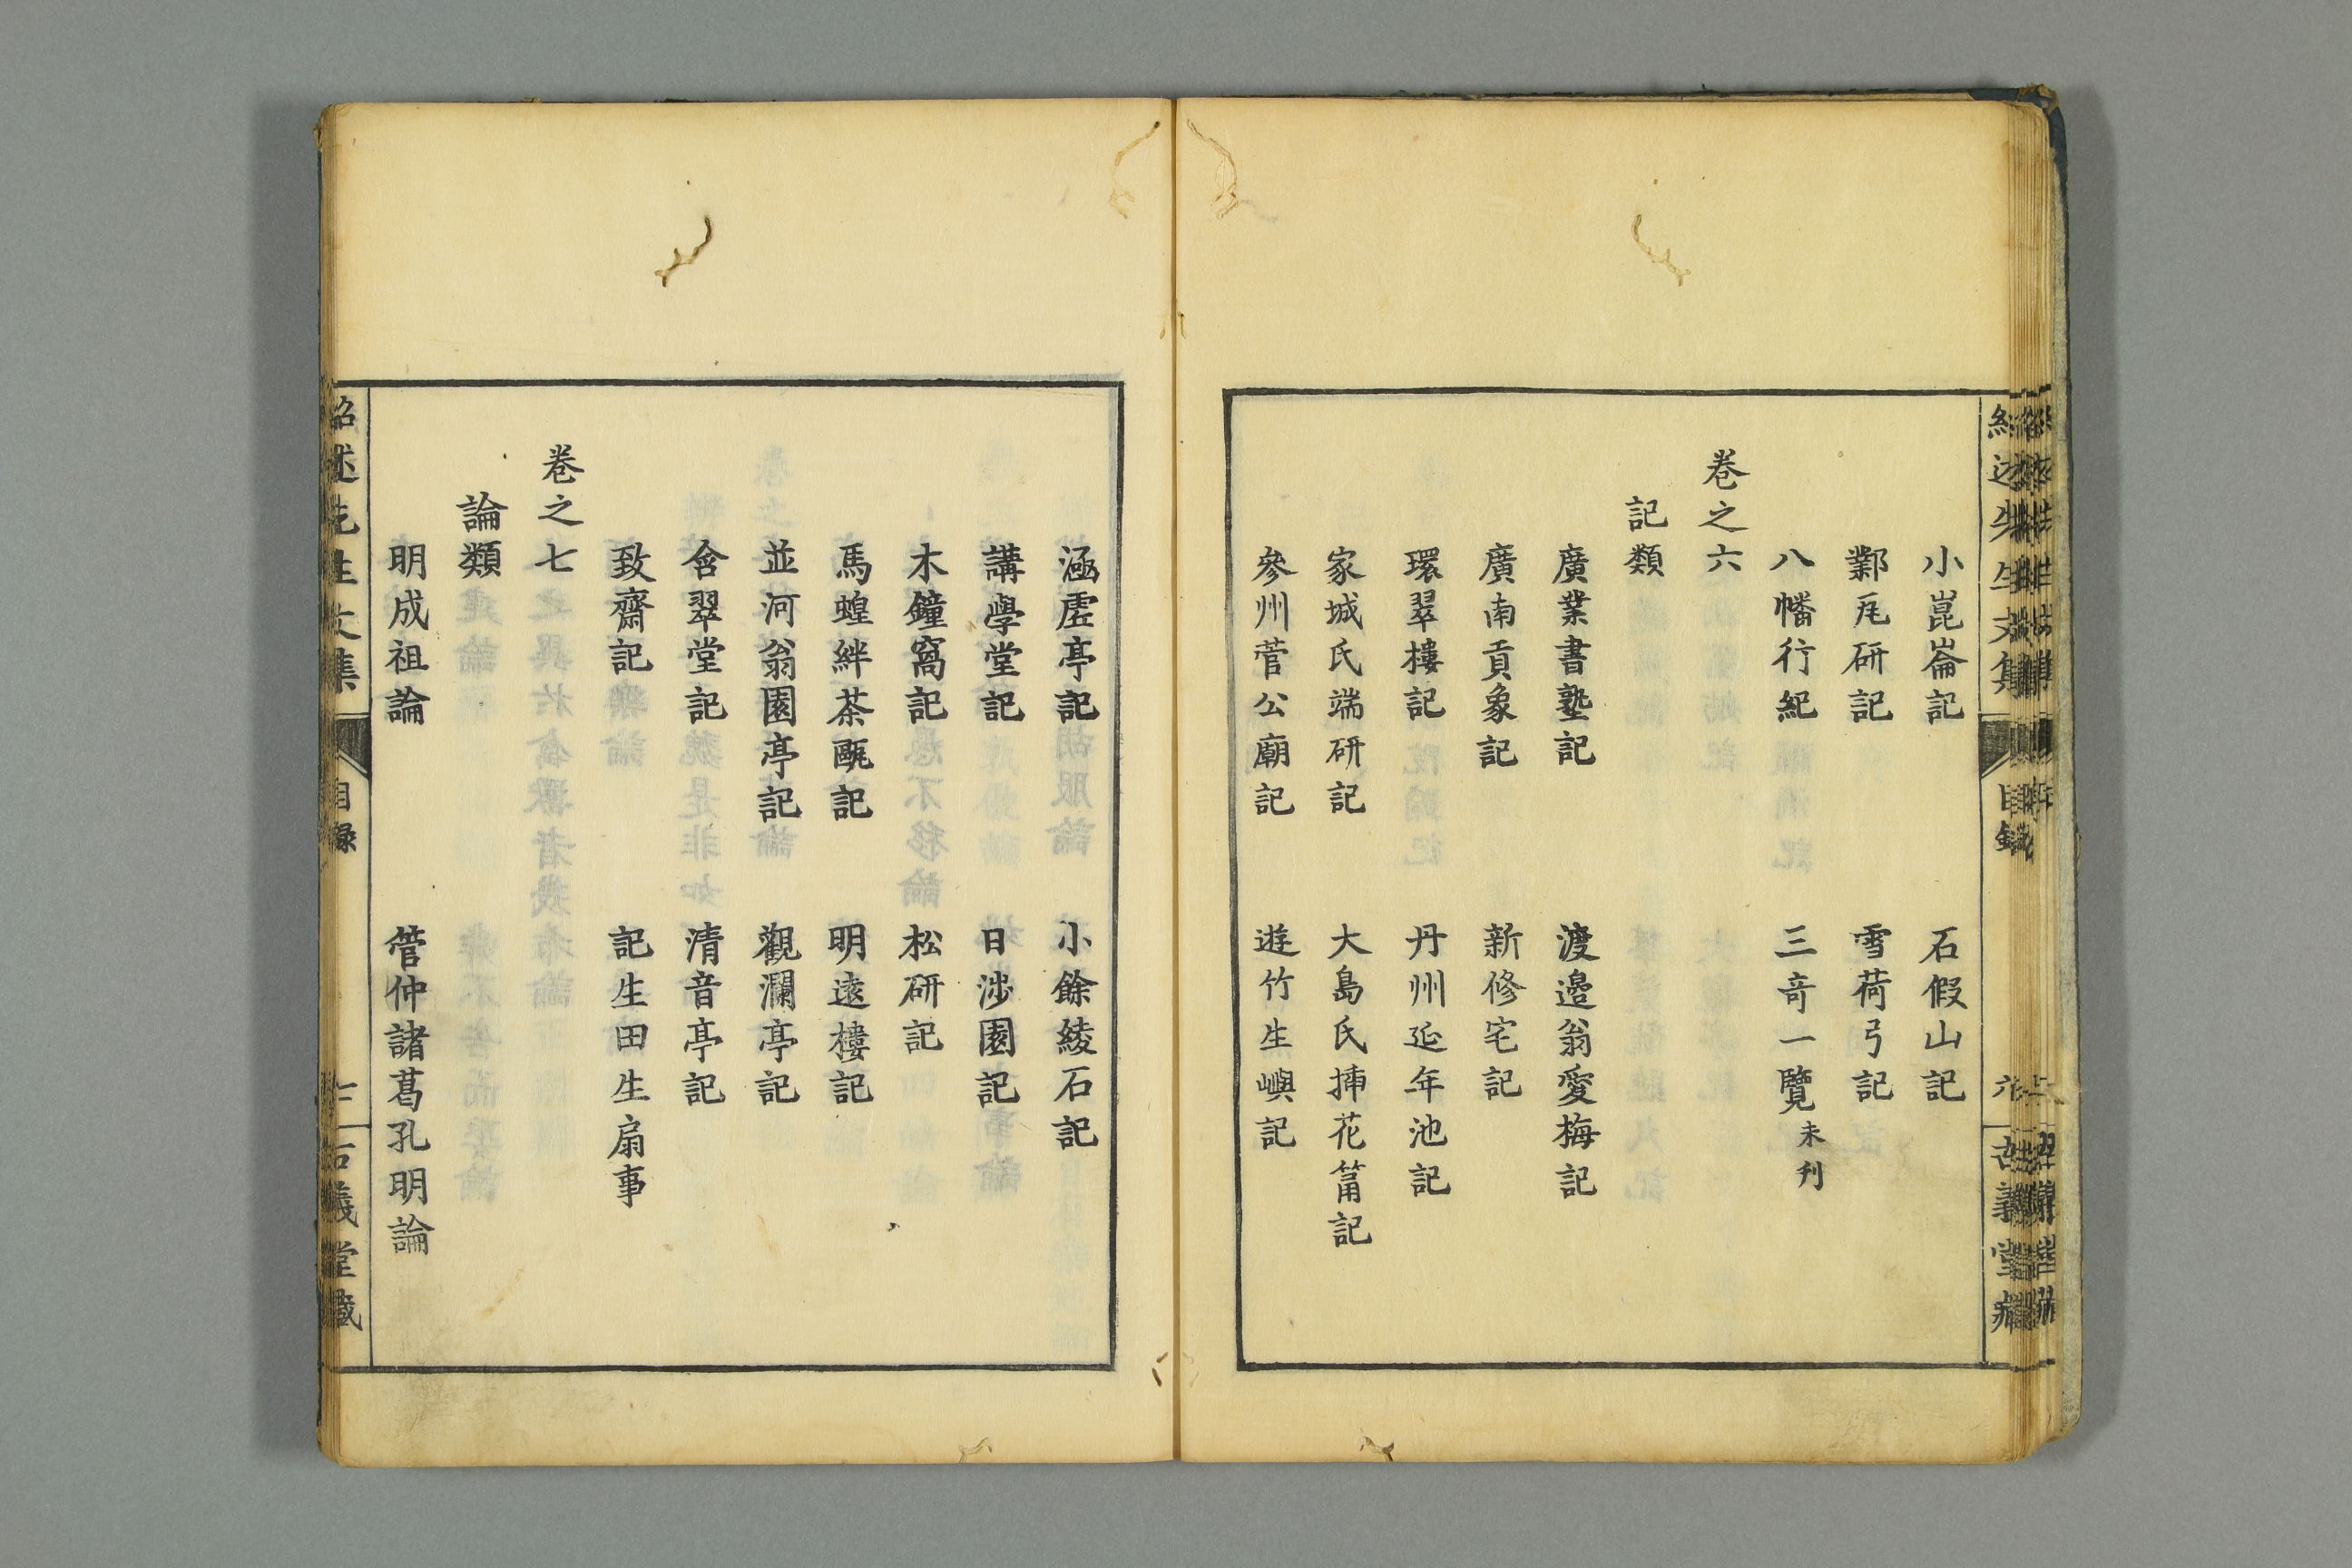 小崑崙記　石假山記
鄴瓦研記　雪荷弓記
八幡行紀　三竒一覽未刋
卷之六
記類
廣業書塾記　渡邉翁愛梅記
廣南貢象記　新修宅記
環翠樓記　丹州延年池記
家城氏端研記　大島氏挿花筩記
參州菅公廟記　遊竹生嶼記
涵虗亭記　小餘綾石記
講學堂記　日涉園記
木鐘窩記　松研記
馬蝗絆茶甌記　明遠樓記
並河翁園亭記　觀瀾亭記
含翠堂記　清音亭記
致齋記　記生田生扇事
卷之七
論類
明成祖論　管仲諸葛孔明論
紹述先生文集　目録　七　古義堂藏